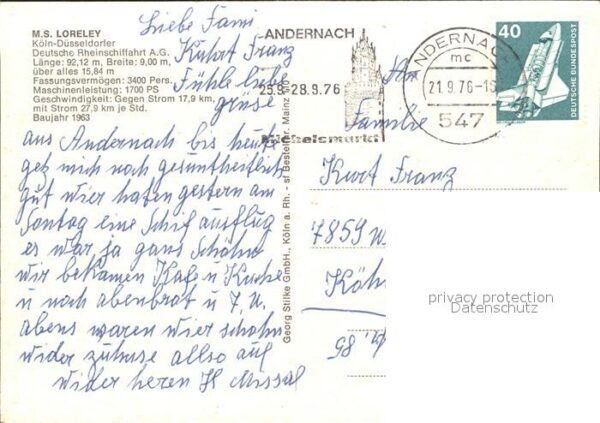 M.S. LORELEY
Köln-Düsseldorfer
Deutsche Rheinschiffahrt A.G.
Länge: 92,12 m, Breite: 9,00 m,
über alles 15,84 m
Fassungsvermögen: 3400 Pers.
Maschinenleistung: 1700 PS
Geschwindigkeit: Gegen Strom 17,9 km,
mit Strom 27,9 km je Std.
Baujahr 1963
Liebe Fami
Kurt Franz
Fühle liebe
grüse
aus Andernach bis heute
get mich noch gesuntheitlich
gut wier haten gestern am
Sontag eine Schif ausflug
es war ja gans Schöhn
wir bekamen Kafe u Kuche
u noch abenbrot u 7. U.
abens waren wier schohn
wider zuhuse alles auf
wider heren H Missal
Georg Stilke GmbH., Köln a. Rh. - Bestellnr. Mainz
ANDERNACH
25.9-28.9.76
Michelsmarkt
ANDERNACH
mc
21.9.76-15
547
40
DEUTSCHE BUNDESPOST
An
Familie
Kurt Franz
7859 W
Köh
98
privacy protection
Datenschutz